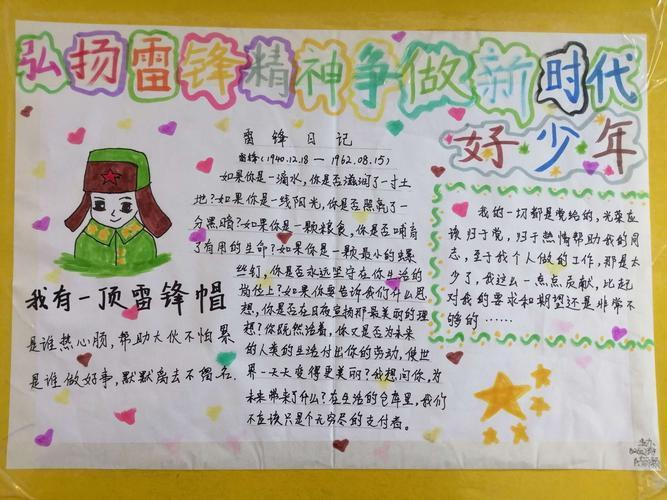 弘扬雷锋精神争做新时代
好少年
雷锋日记
雷锋(1940.12.18—1962.08.15)
如果你是一滴水,你是否滋润了一寸土
地?如果你是一线阳光,你是否照亮了一
分黑暗?如果你是一颗粮食,你是否哺育
了有用的生命?如果你是一颗最小的螺
丝钉,你是否永远坚守在你生活的
岗位上?如果你要告诉我们什么思
想,你是否在日夜宣扬那最美丽的理
想?你既然活着,你又是否为未来
的人类的生活付出你的劳动,使世
界一天天变得更美丽?我想问你,为
未来带来了什么?在生活的仓库里,我们
不应该只是个无穷尽的支付者。
我有一顶雷锋帽
是谁热心肠,帮助大伙不怕累
是谁做好事,默默离去不留名.
我的一切都是党给的,光荣应
该归于党,归于热情帮助我的同
志,至于我个人做的工作,那是太
少了,我这么一点点贡献,比起
对我的要求和期望还是非常不
够的……